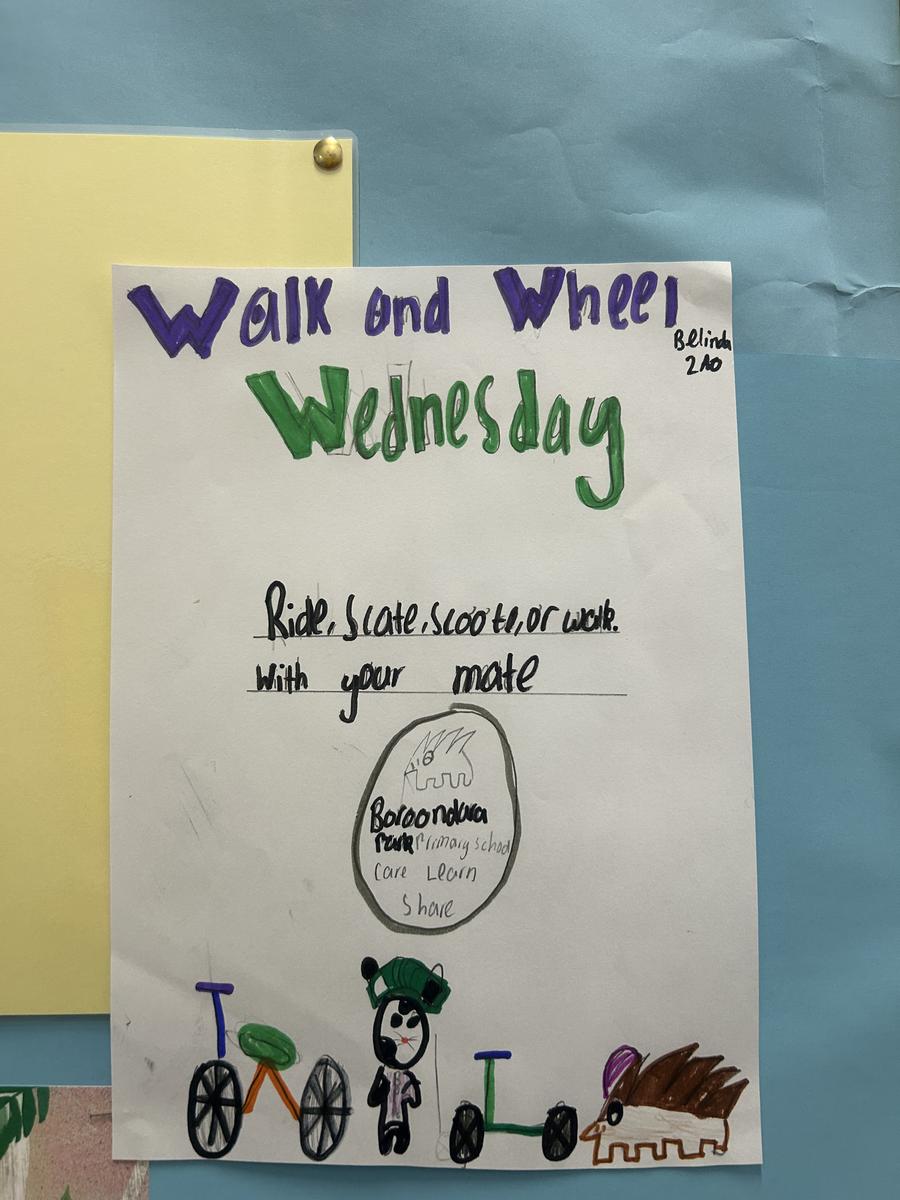 Walk and Wheel
Belinda
2AO
Wednesday
Ride, Scate, scoote, or walk.
With your mate
Boroondara
Park Primary school
Care Learn
Share